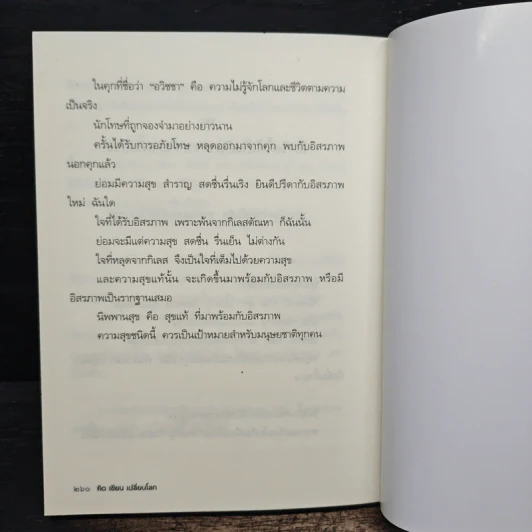 ในคุกที่ชื่อว่า "อวิชชา" คือ ความไม่รู้จักโลกและชีวิตตามความ
เป็นจริง
นักโทษที่ถูกจองจำมาอย่างยาวนาน
ครั้นได้รับการอภัยโทษ หลุดออกมาจากคุก พบกับอิสรภาพ
นอกคุกแล้ว
ย่อมมีความสุข สำราญ สดชื่นรื่นเริง ยินดีปรีดากับอิสรภาพ
ใหม่ ฉันใด
ใจที่ได้รับอิสรภาพ เพราะพ้นจากกิเลสตัณหา ก็ฉันนั้น
ย่อมจะมีแต่ความสุข สดชื่น รื่นเย็น ไม่ต่างกัน
ใจที่หลุดจากกิเลส จึงเป็นใจที่เต็มไปด้วยความสุข
และความสุขแท้นั้น จะเกิดขึ้นมาพร้อมกับอิสรภาพ หรือมี
อิสรภาพเป็นรากฐานเสมอ
นิพพานสุข คือ สุขแท้ ที่มาพร้อมกับอิสรภาพ
ความสุขชนิดนี้ ควรเป็นเป้าหมายสำหรับมนุษยชาติทุกคน
๒๖๐ คิด เขียน เปลี่ยนโลก